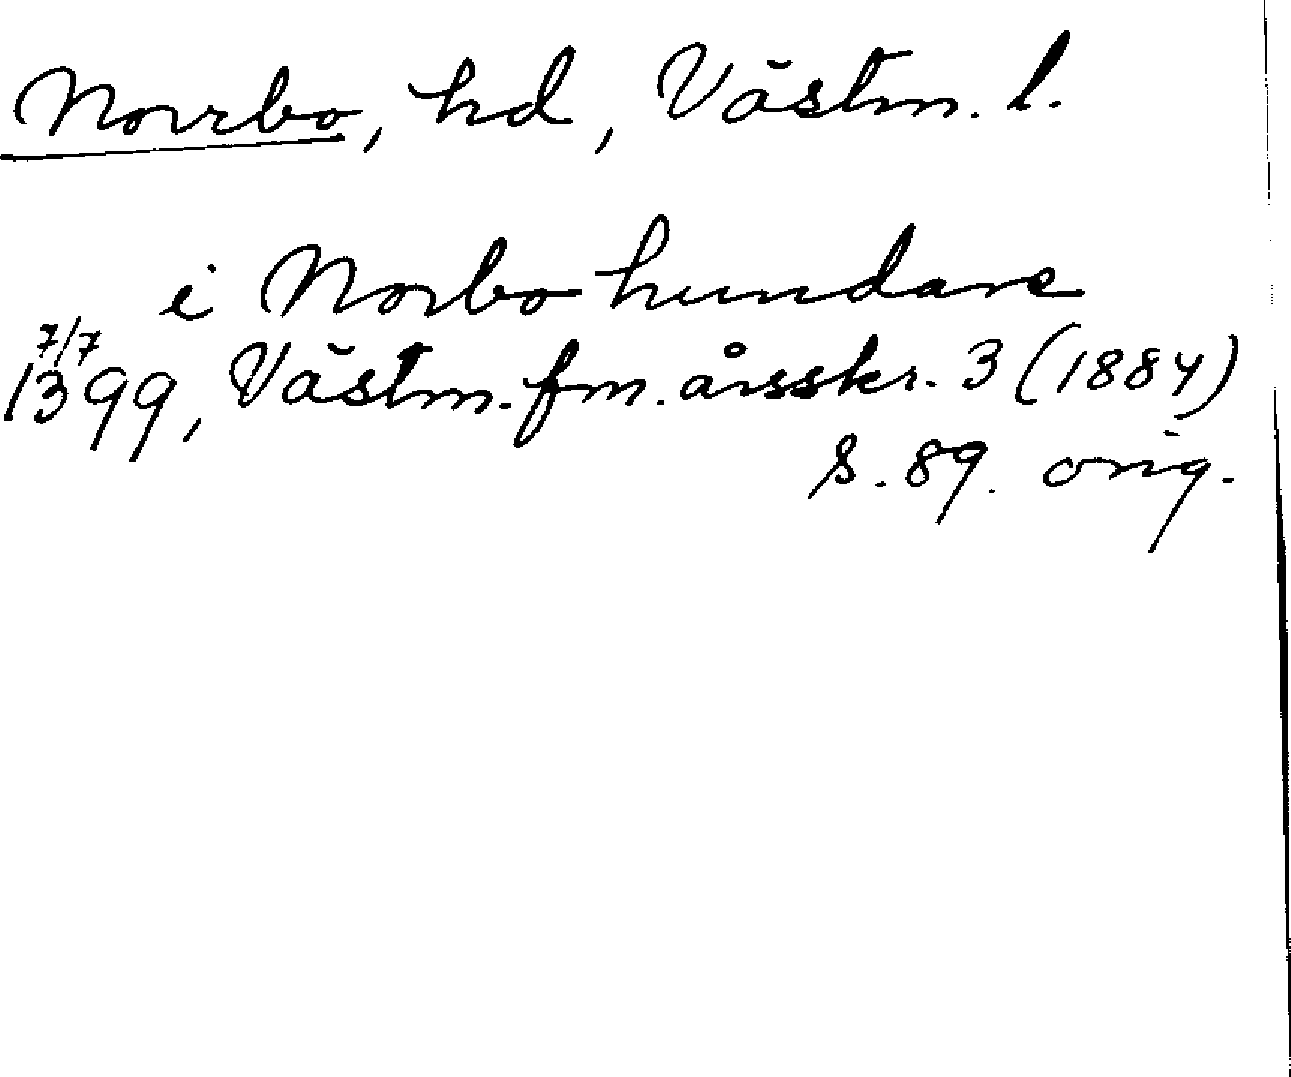 Norrbo, hd, Västm. l.
i Norbo hundare
7/7
1399, Västm. fm. årsskr. 3 (1884)
s. 89. orig.